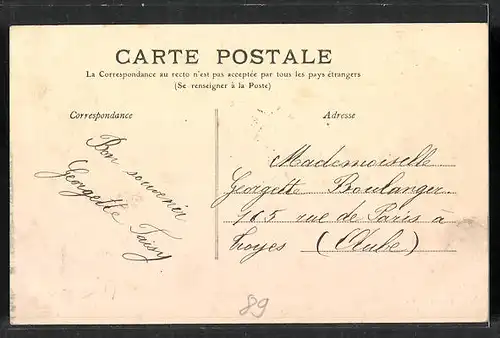 CARTE POSTALE
La Correspondance au recto n'est pas acceptée par tous les pays étrangers
(Se renseigner à la Poste)
Correspondance
Bon souvenir
Georgette
Adresse
Mademoiselle
Georgette Boulanger
165 rue de Paris à
Troyes (Aube)
89